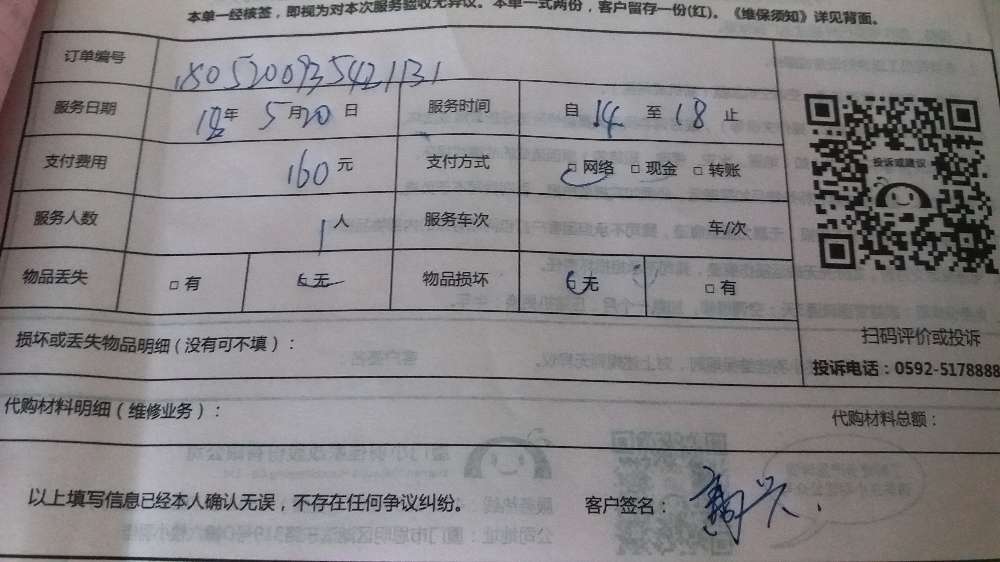 本单一经核签，即视为对本次服务验收无异议。本单一式两份，客户留存一份(红)。《维保须知》详见背面。
订单编号 1805200935421131
服务日期 18年 5月20日 服务时间 自 14 至 18 止
支付费用 160元 支付方式 □网络 □现金 □转账
服务人数 1人 服务车次 车/次
物品丢失 □有 无 物品损坏 无 □有
投诉或建议
扫码评价或投诉
投诉电话：0592-5178888
损坏或丢失物品明细（没有可不填）：
代购材料明细（维修业务）： 代购材料总额：
以上填写信息已经本人确认无误，不存在任何争议纠纷。 客户签名：